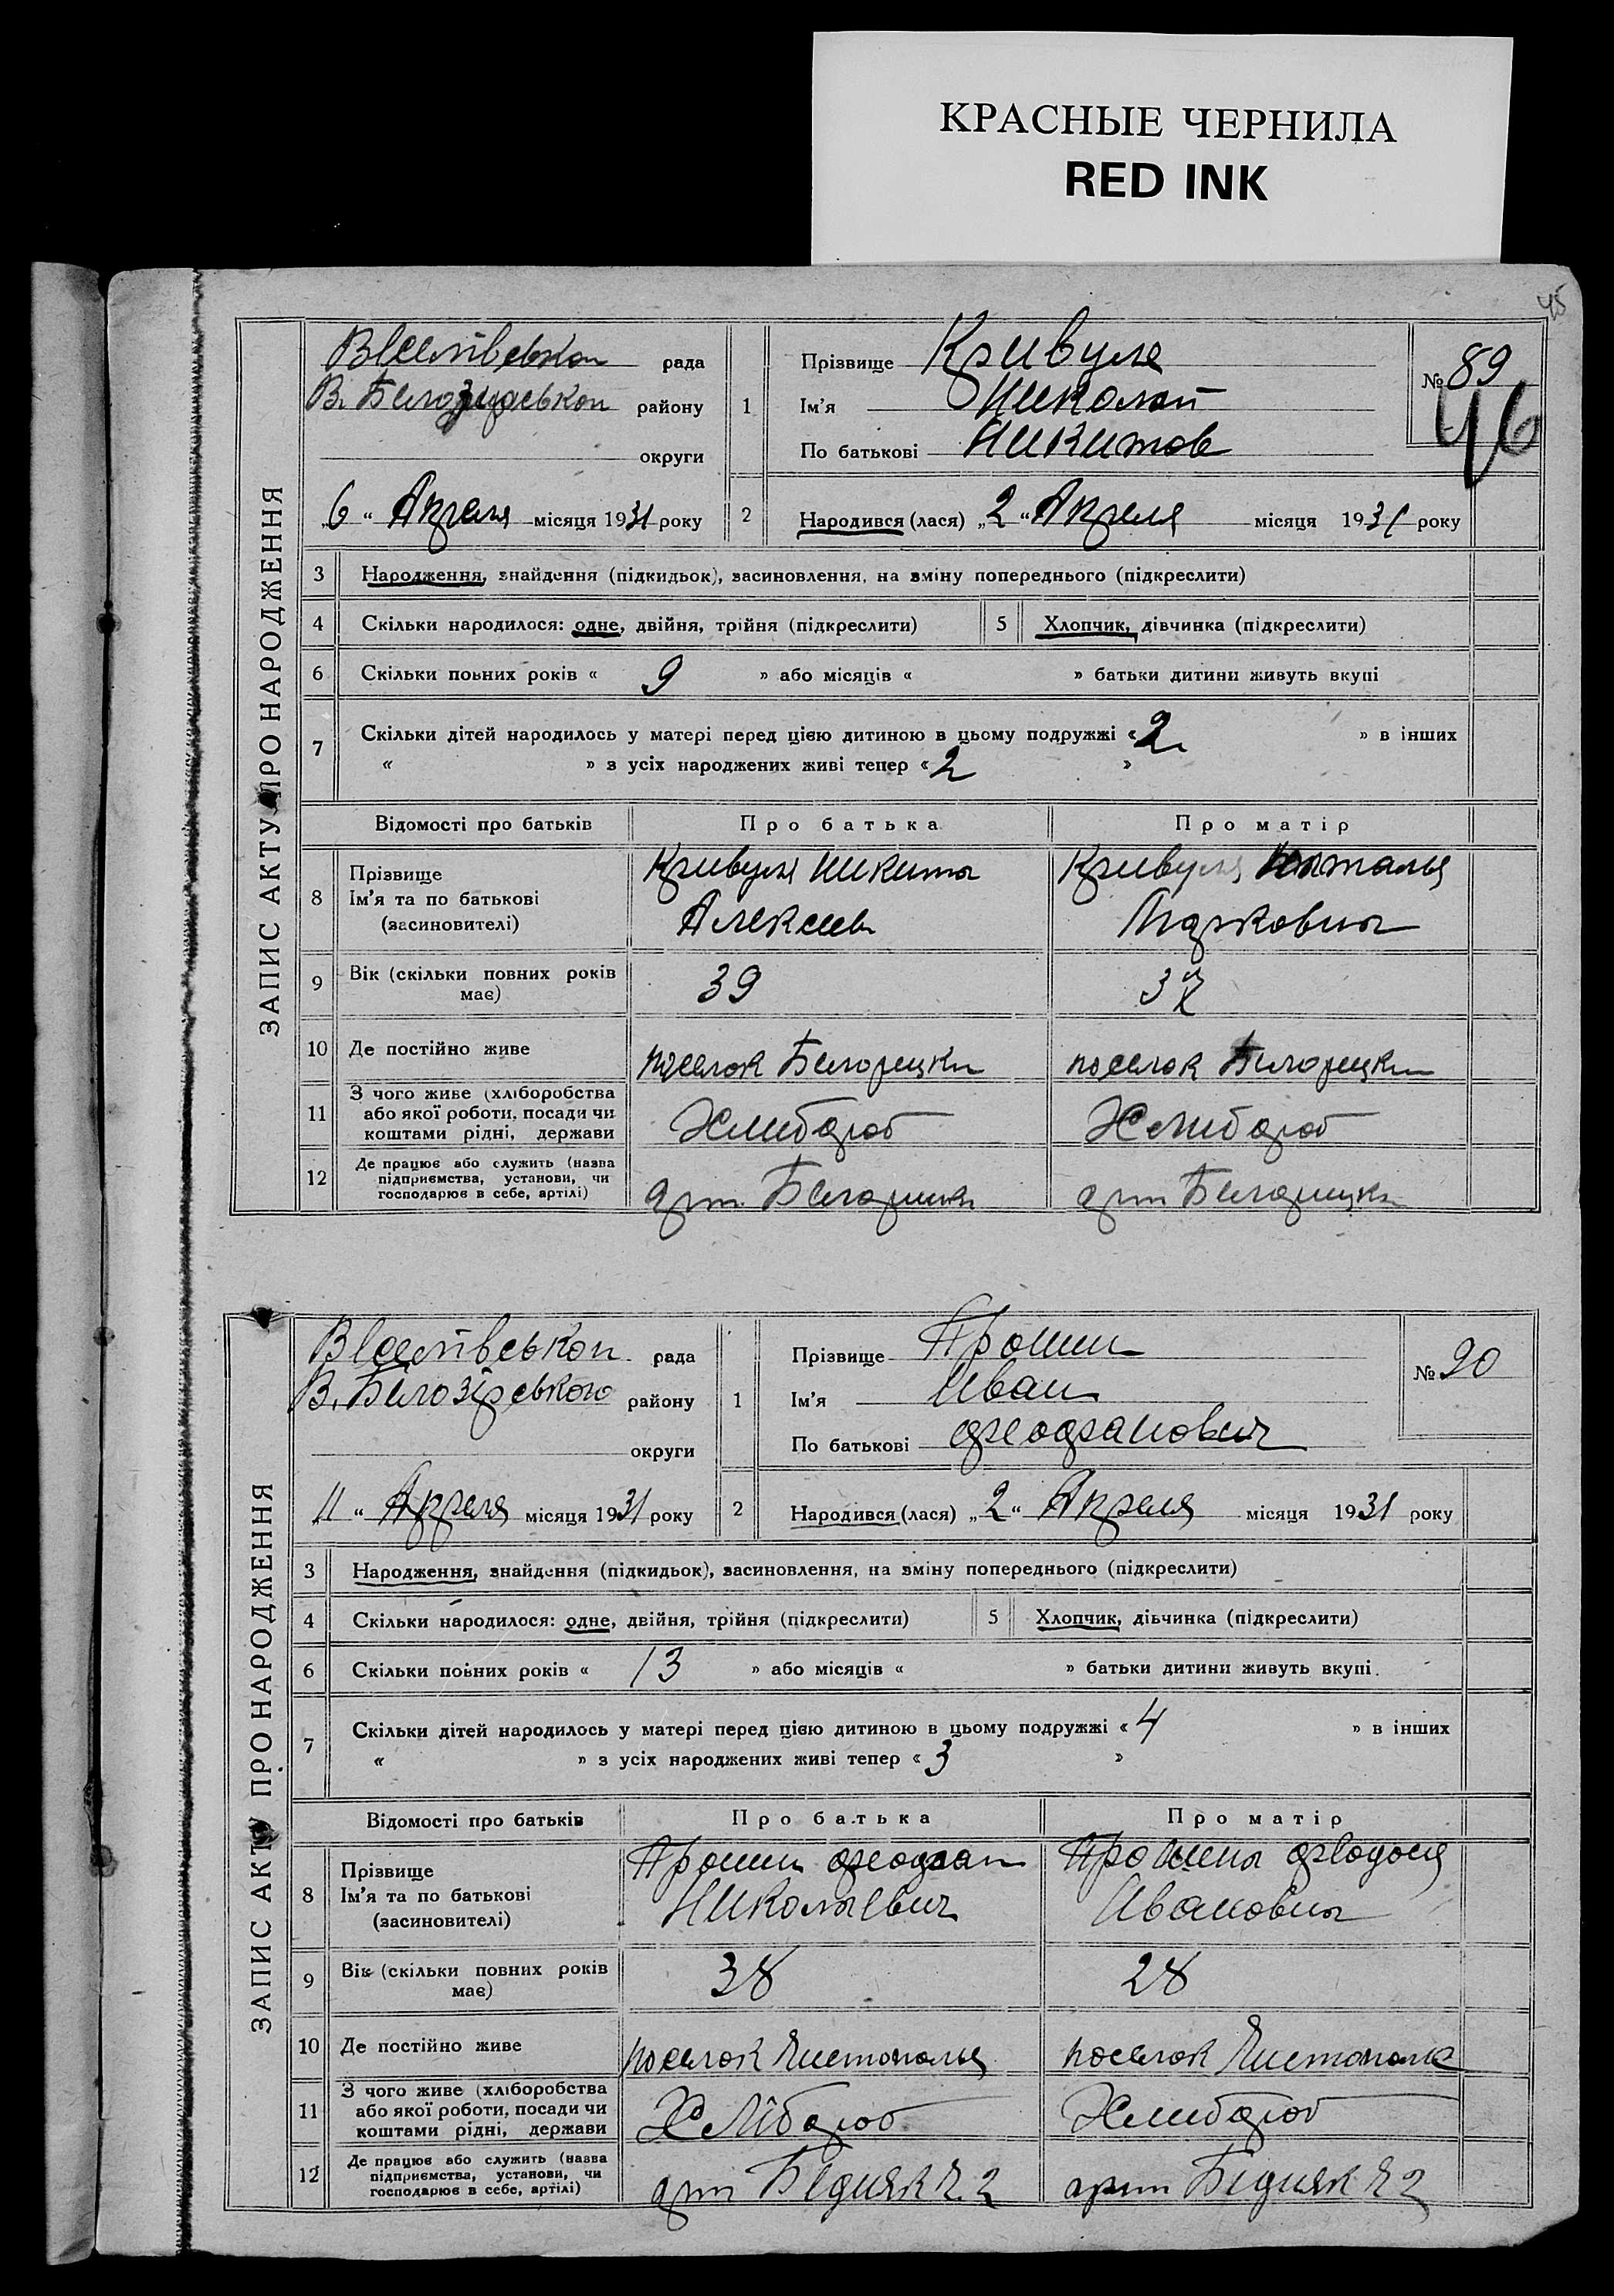 КРАСНЫЕ ЧЕРНИЛА
RED INK
45
ЗАПИС АКТУ ПРО НАРОДЖЕННЯ
рада
району
округи
„6“ Апреля місяця 1931 року
1
Прізвище Кривуля
Ім'я Николай
По батькові Никитов
№ 89
46
2
Народився (лася) „2“ Апреля місяця 1931 року
3 Народження, знайдення (підкидьок), засиновлення, на зміну попереднього (підкреслити)
4 Скільки народилося: одне, двійня, трійня (підкреслити) 5 Хлопчик, дівчинка (підкреслити)
6 Скільки повних років « 9 » або місяців « » батьки дитини живуть вкупі
7 Скільки дітей народилось у матері перед цією дитиною в цьому подружжі « 2 » в інших
« » з усіх народжених живі тепер « 2 »
Відомості про батьків Про батька Про матір
8 Прізвище
Ім'я та по батькові
(засиновителі)
Кривуля Никита
Алексеев
Кривуля Наталья
Марковна
9 Вік (скільки повних років
має)
39 37
10 Де постійно живе поселок Белорецки поселок Белорецки
11 З чого живе (хліборобства
або якої роботи, посади чи
коштами рідні, держави
Хлибороб Хлибороб
12 Де працює або служить (назва
підприємства, установи, чи
господарює в себе, артілі)
арт
арт
ЗАПИС АКТУ ПРО НАРОДЖЕННЯ
рада
В. Білозірського району
округи
„11“ Апреля місяця 1931 року
1
Прізвище Прошин
Ім'я Иван
По батькові Феофанович
№ 90
2
Народився (лася) „2“ Апреля місяця 1931 року
3 Народження, знайдення (підкидьок), засиновлення, на зміну попереднього (підкреслити)
4 Скільки народилося: одне, двійня, трійня (підкреслити) 5 Хлопчик, дівчинка (підкреслити)
6 Скільки повних років « 13 » або місяців « » батьки дитини живуть вкупі.
7 Скільки дітей народилось у матері перед цією дитиною в цьому подружжі « 4 » в інших
« » з усіх народжених живі тепер « 3 »
Відомості про батьків Про батька Про матір
8 Прізвище
Ім'я та по батькові
(засиновителі)
Прошин Феофан
Николаевич
Прошина Февдосия
Ивановна
9 Вік (скільки повних років
має)
38 28
10 Де постійно живе поселок Чистополья поселок Чистополье
11 З чого живе (хліборобства
або якої роботи, посади чи
коштами рідні, держави
Хлібороб Хлибороб
12 Де працює або служить (назва
підприємства, установи, чи
господарює в себе, артілі)
арт Бедняк Ч. 2
арт Бедняк Ч 2